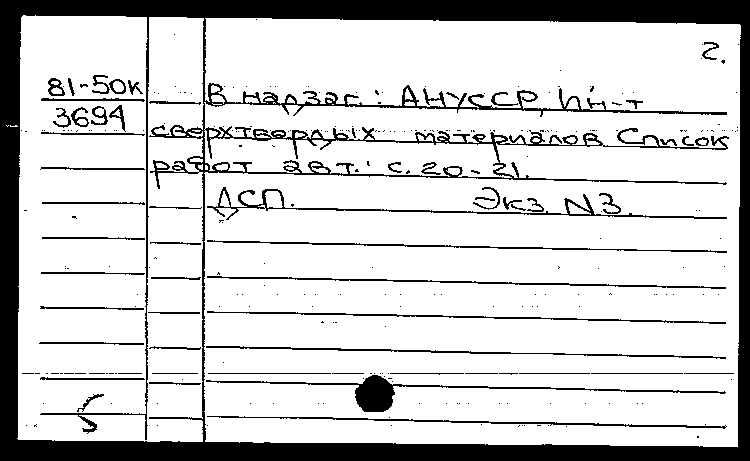 2.
81-50К
3694
В надзаг.: АНУССР, Ин-т
сверхтвердых материалов Список
работ авт.: с. 20-21.
ДСП. Экз. N3.
5